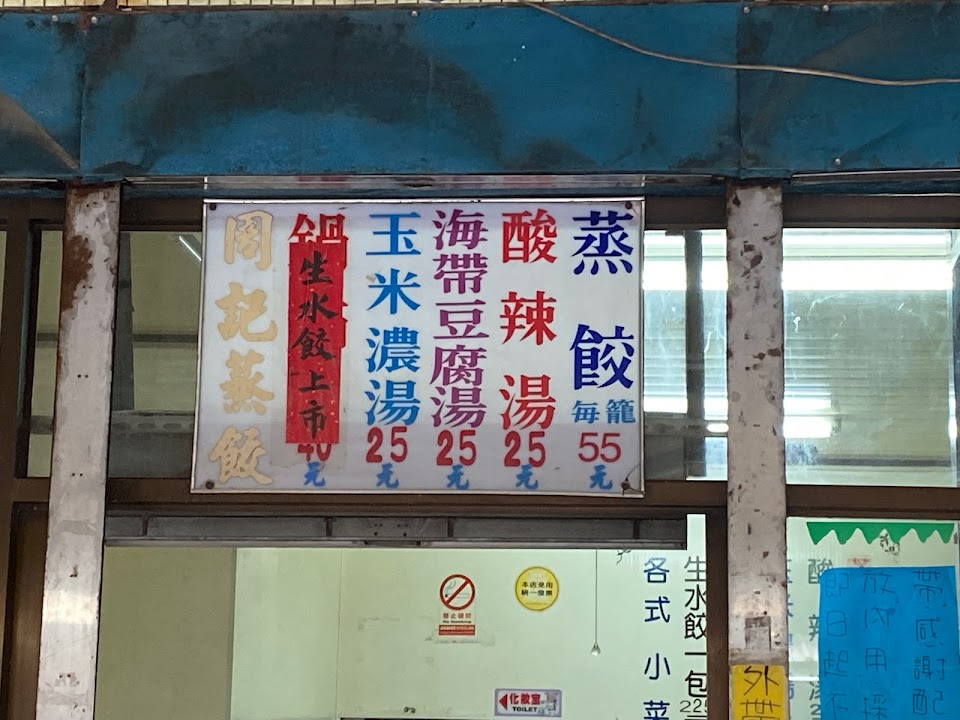 蒸餃 每籠 55元
酸辣湯 25元
海帶豆腐湯 25元
玉米濃湯 25元
鍋 40元
生水餃上市
周記蒸餃
禁止吸菸
No Smoking
本店使用
統一發票
化妝室
TOILET
各式小菜
生水餃一包
225
酸辣
外帶
帶,感謝配
放內用採
即日起不